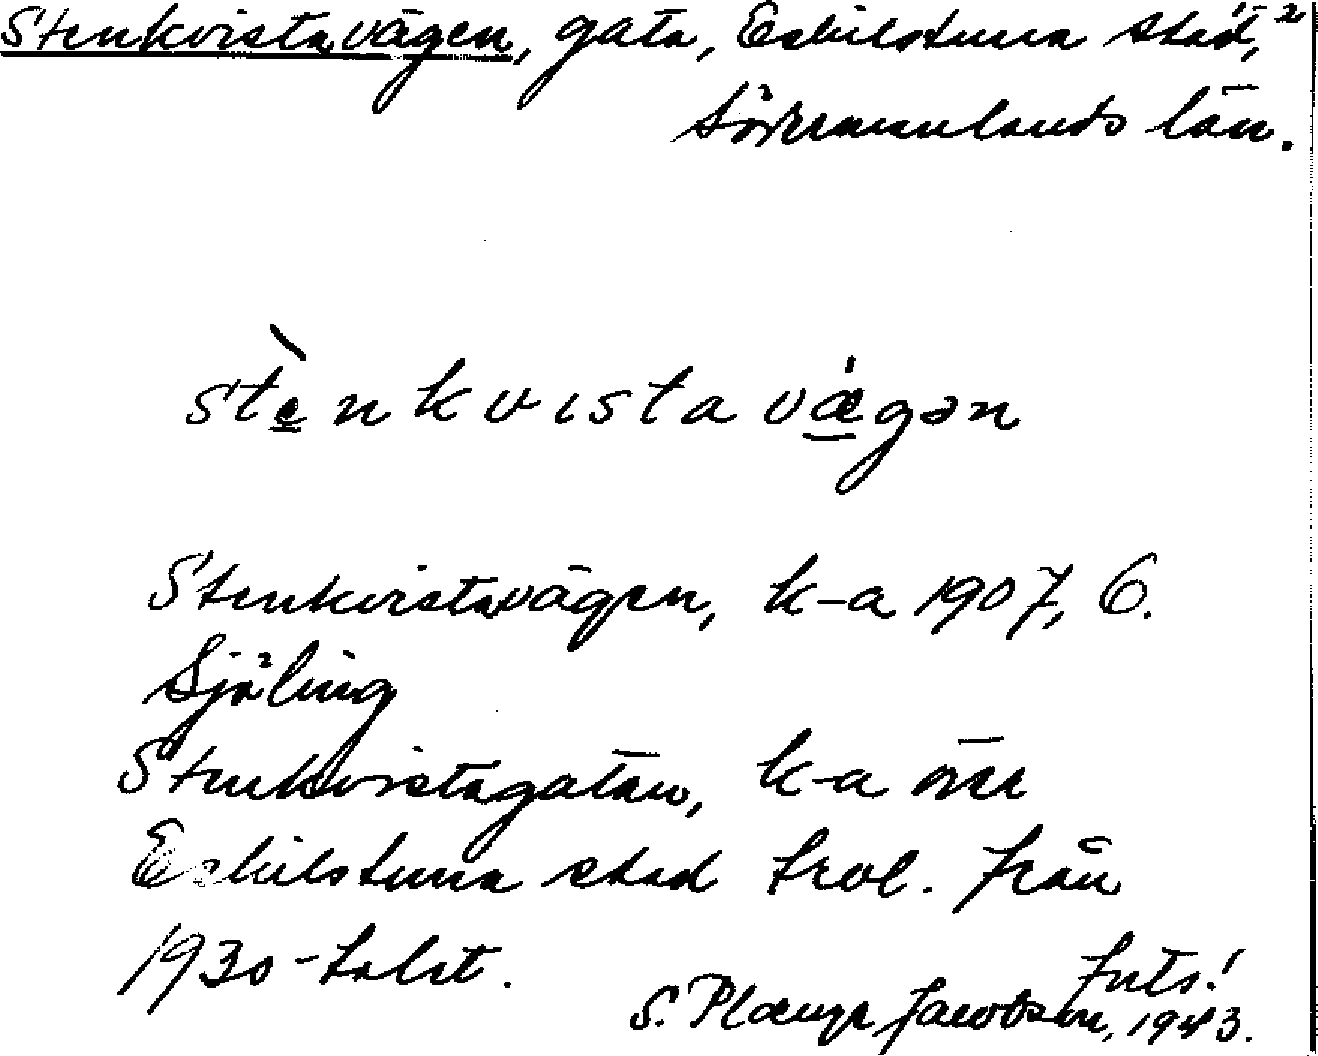 Stenkvistavägen, gata, Eskilstuna stad, 2
Södermanlands län.
stènkvıstavǽgən
Stenkvistavägen, k-a 1907, G.
Själing
Stenkvistagatan, k-a över
Eskilstuna stad trol. från
1930-talet.
Forts!
S. Jacobson, 1943.